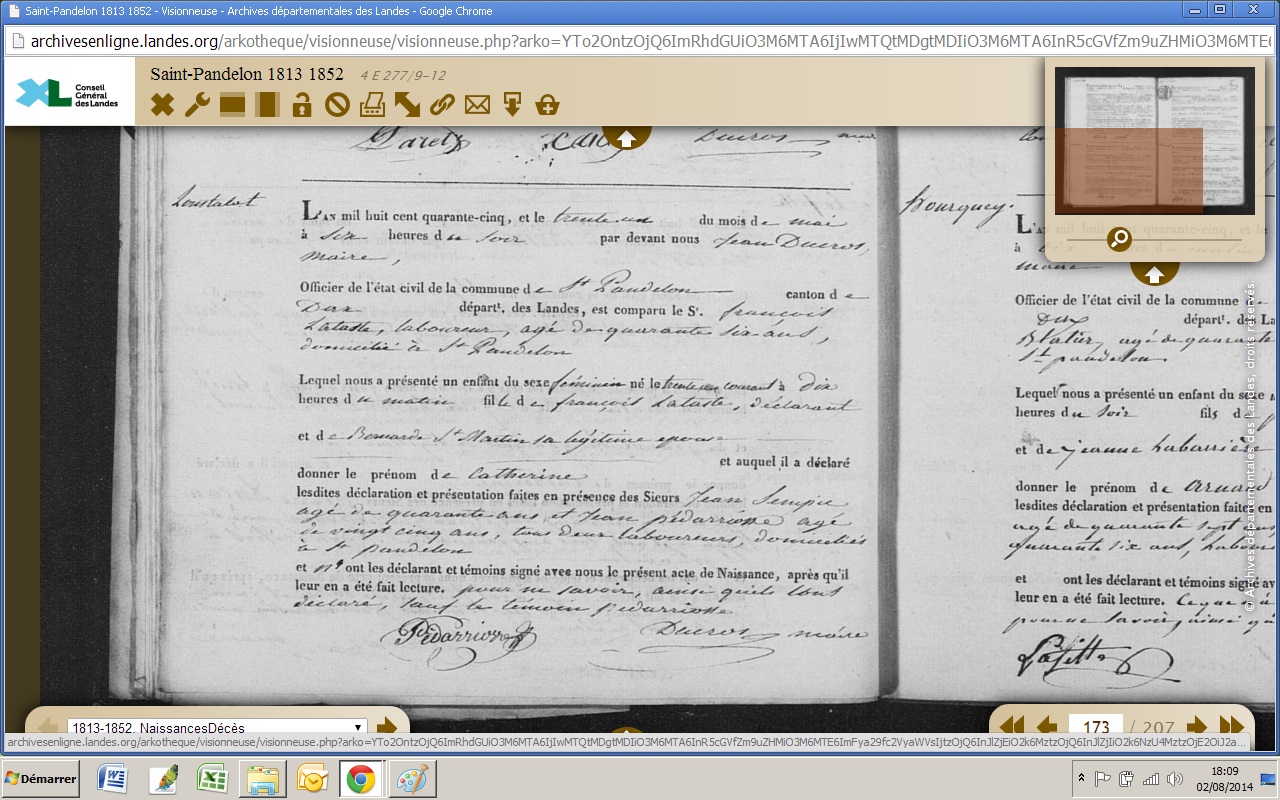 Saint-Pandelon 1813 1852 - Visionneuse - Archives départementales des Landes - Google Chrome
archivesenligne.landes.org/arkotheque/visionneuse/visionneuse.php?arko=
Conseil
Général
des Landes
Saint-Pandelon 1813 1852 4 E 277/9-12
Ducros maire
Loustalot
L'AN mil huit cent quarante-cinq, et le trente un du mois de mai
à six heures du soir par devant nous Jean Ducros,
maire,
Officier de l'état civil de la commune de St Pandelon canton de
Dax départt. des Landes, est comparu le Sr. françois
Lataste, laboureur, agé de quarante six ans,
domicilié à St Pandelon
Lequel nous a présenté un enfant du sexe féminin né le trente un courant à dix
heures du matin fille de françois Lataste, déclarant
et de Bernarde St Martin sa légitime epouse
et auquel il a déclaré
donner le prénom de Catherine
lesdites déclaration et présentation faites en présence des Sieurs Jean Sempé
agé de quarante ans et Jean pédarriosse agé
de vingt cinq ans, tous deux laboureurs, domiciliés
à St pandelon
et n' ont les déclarant et témoins signé avec nous le présent acte de Naissance, après qu'il
leur en a été fait lecture. pour ne savoir, ainsi qu'ils l'ont
déclaré, sauf le témoin pedarriosse
Pédarriosse Ducros maire
Bourguey.
L
à
maire
Officier de l'état civil de la commune
Dax départ. des La
agé de quarante
St pandelon
Lequel nous a présenté un enfant du sexe
heures du soir fils d
et de jeanne Labarrière
donner le prénom de Arnaud
lesdites déclaration et présentation faites en
agé de quarante sept ans
quarante six ans,
et ont les déclarant et témoins signé av
leur en a été fait lecture.
pour ne savoir, ainsi qu
Lafitte
© Archives départementales des Landes, droits réservés.
1813-1852, NaissancesDécès
173 / 207
archivesenligne.landes.org/arkotheque/visionneuse/visionneuse.php?arko=
Démarrer
18:09
02/08/2014